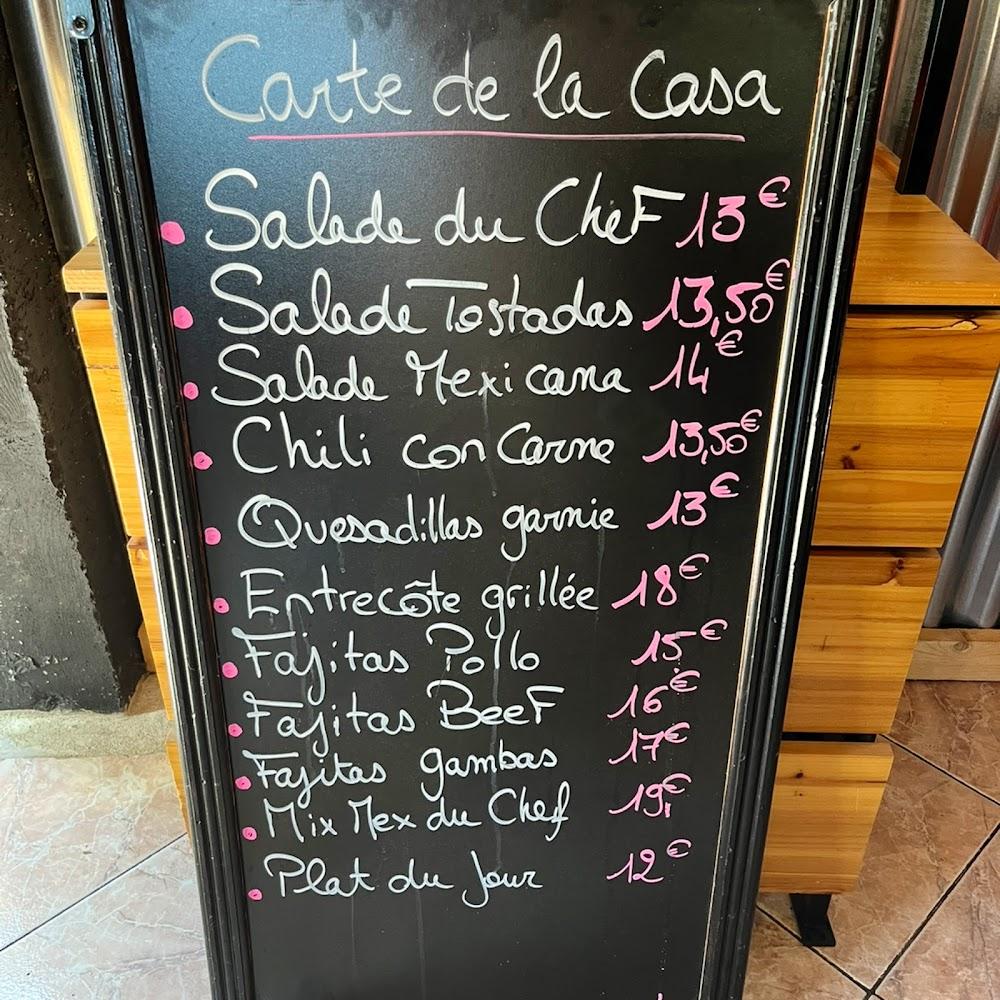 Carte de la Casa
Salade du Chef 13€
Salade Tostadas 13,50€
Salade Mexicana 14€
Chili con Carne 13,50€
Quesadillas garnie 13€
Entrecôte grillée 18€
Fajitas Pollo 15€
Fajitas Beef 16€
Fajitas gambas 17€
Mix Mex du Chef 19€
Plat du Jour 12€